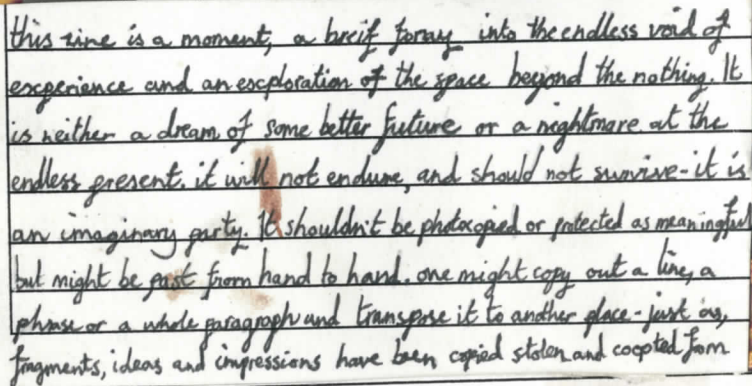 this zine is a moment, a breif foray into the endless void of
experience and an exploration of the space beyond the nothing. It
is neither a dream of some better future or a nightmare at the
endless present. it will not endure, and should not survive - it is
an imaginary party. It shouldn't be photocopied or protected as meaningful
but might be past from hand to hand. one might copy out a line, a
phrase or a whole paragraph and transpose it to another place - just as,
fragments, ideas and impressions have been copied stolen and coopted from